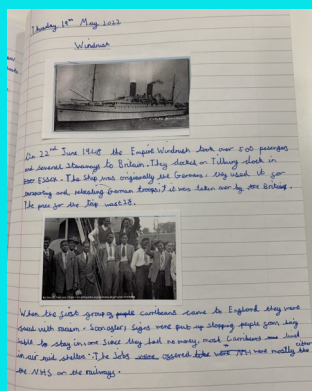 Thursday 19th May 2022
Windrush
On 22nd June 1948 the Empire Windrush took over 500 pasengers
and several stowaways to Britain. They docked on Tilbury dock in
Essex. The ship was originally the Germans, they used it for
and German troops, it was taken over by the British.
The price for the trip was £28.
When the first group of people carribeans came to England they were
faced with racism. Soon after, signs were put up stopping people from being
able to stay in one. Since they had no money, most Carribeans had
in air raid shelters. The jobs were offered were mostly
the NHS or the railways.